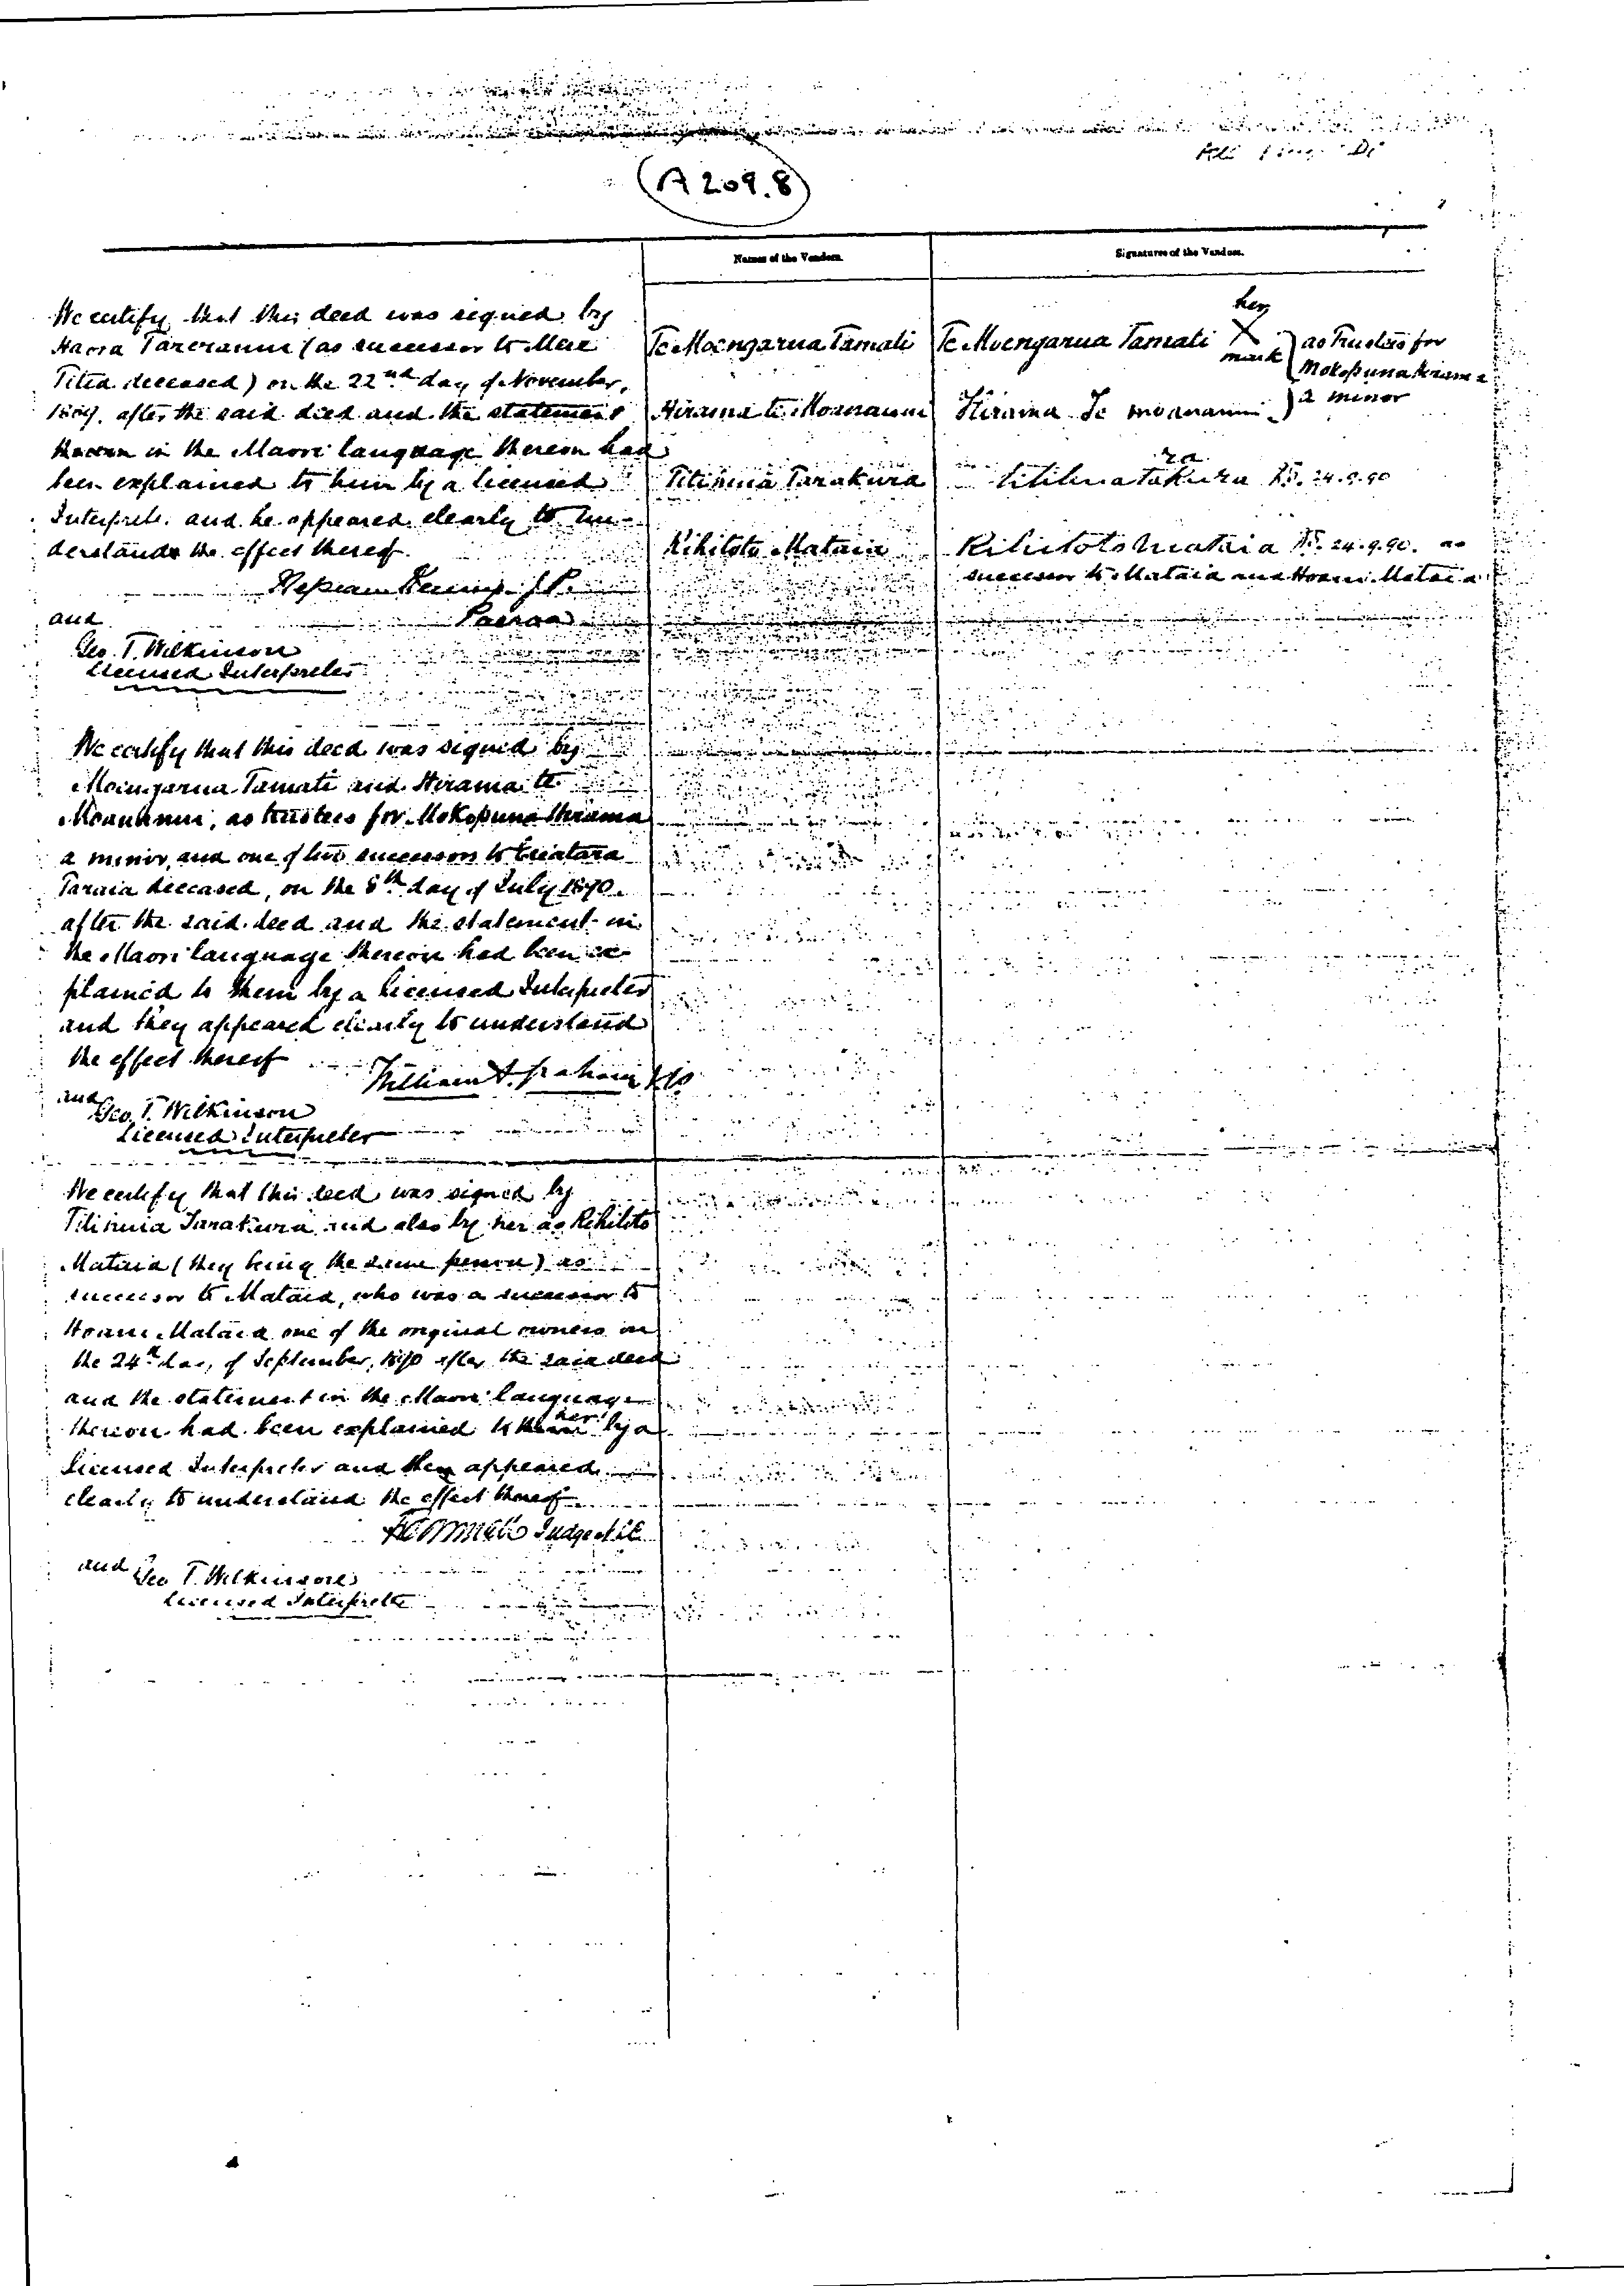 A 209.8
Names of the Vendors.
Signatures of the Vendors.
We certify that this deed was signed by
Haora Tareranui (as successor to Mere
Titia deceased) on the 22nd day of November,
1889. after the said deed and the statement
thereon in the Maori language thereon had
been explained to him by a licensed
Interpreter and he appeared clearly to un-
derstand the effect thereof.
J.P.
Paeroa
and
Geo. T. Wilkinson
Licensed Interpreter
Te Moengarua Tamati
Hirama te Moananui
Titihuia Tarakura
Rihitoto Mataia
her
Te Moengarua Tamati X
mark
as Trustees for
Mokopuna Hirama
a minor
Hirama Te moananui
ra
titihuia takura 24.9.90
Rihitoto Mataia 24.9.90. as
successor to Mataia and Hoani Mataia
We certify that this deed was signed by
Moengarua Tamati and Hirama te
Moananui, as trustees for Mokopuna Hirama
a minor, and one of two successors to
Taraia deceased, on the 8th day of July 1890.
after the said deed and the statement in
the Maori language thereon had been ex-
plained to them by a licensed Interpreter
and they appeared clearly to understand
the effect thereof
William A. Graham J.P.
and
Geo. T. Wilkinson
Licensed Interpreter
We certify that this deed was signed by
Titihuia Tarakura and also by her as Rihitoto
Mataia (they being the same person) as
successor to Mataia, who was a successor to
Hoani Mataia one of the original owners on
the 24th day of September, 1890 after the said deed
and the statement in the Maori language
her
thereon had been explained to them by a
licensed Interpreter and they appeared
clearly to understand the effect thereof
Judge N.L.C.
and
Geo T. Wilkinson
Licensed Interpreter